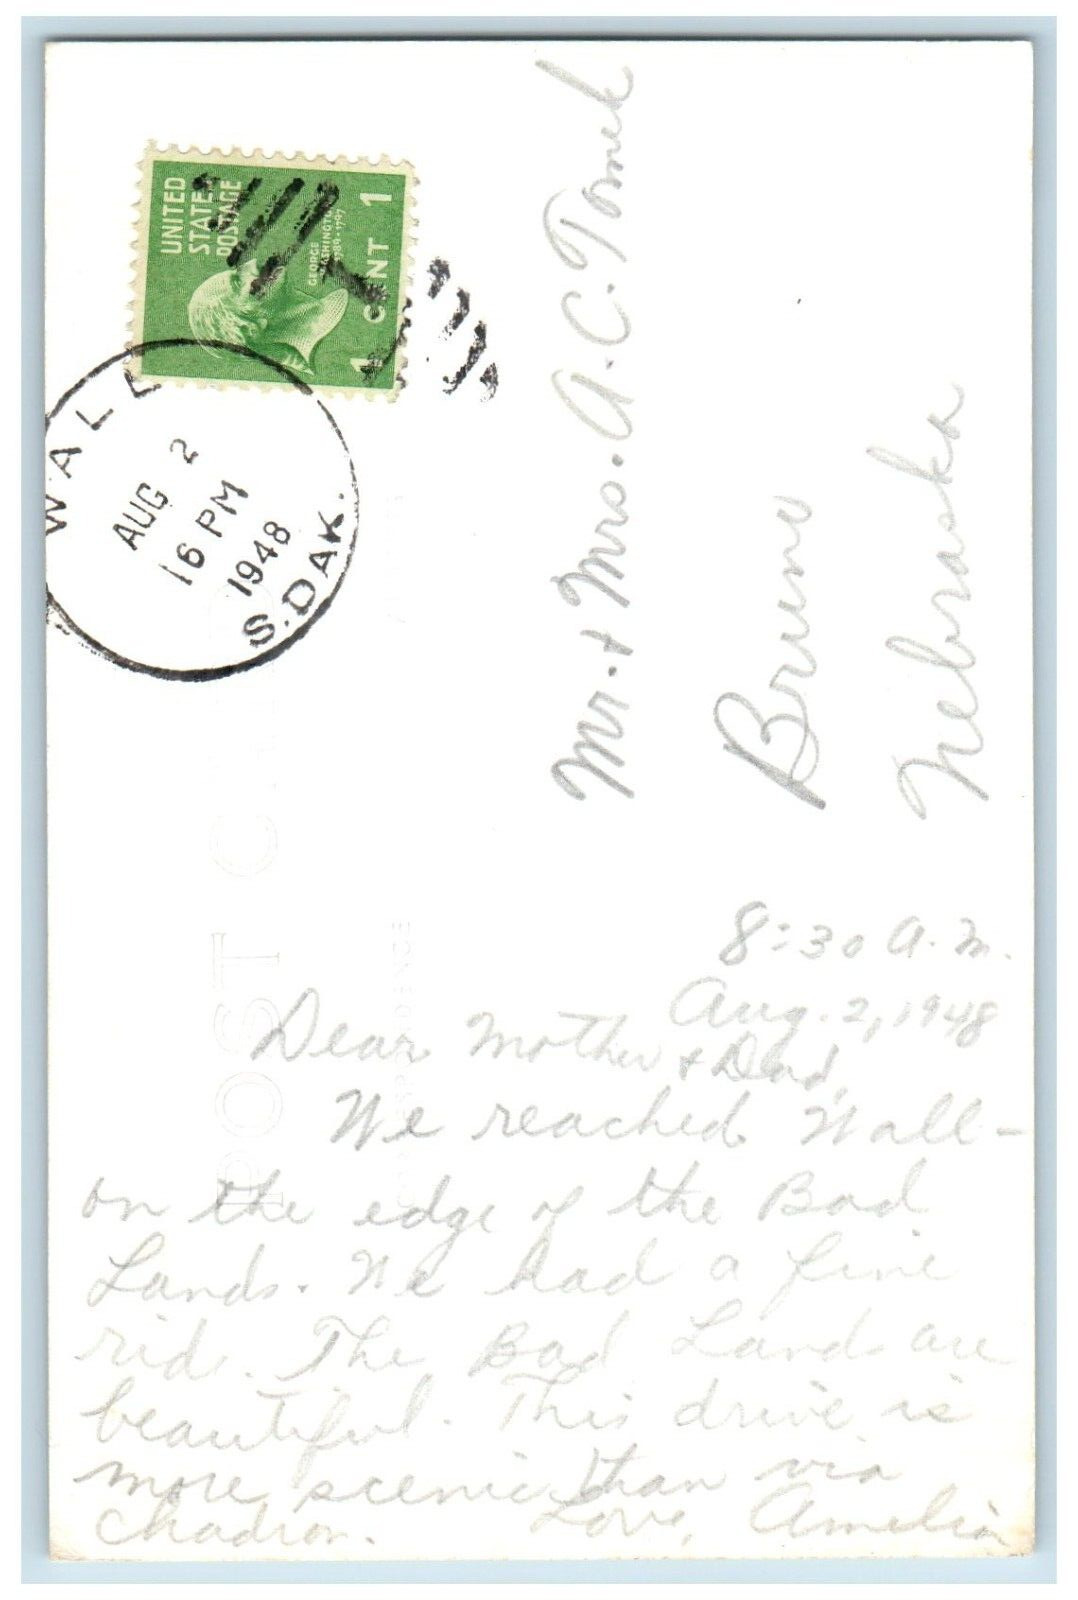 UNITED
STATES
POSTAGE
GEORGE
WASHINGTON
1789-1797
1 CENT 1
WALL
AUG 2
16 PM
1948
S. DAK.
POST CARD
CORRESPONDENCE
Mr. & Mrs. A. C. Tomek
Bruno
Nebraska
8:30 A.M.
Aug. 2, 1948
Dear Mother & Dad,
We reached Wall -
on the edge of the Bad
Lands. We had a fine
ride. The Bad Lands are
beautiful. This drive is
more scenic than via
Chadron. Love, Amelia